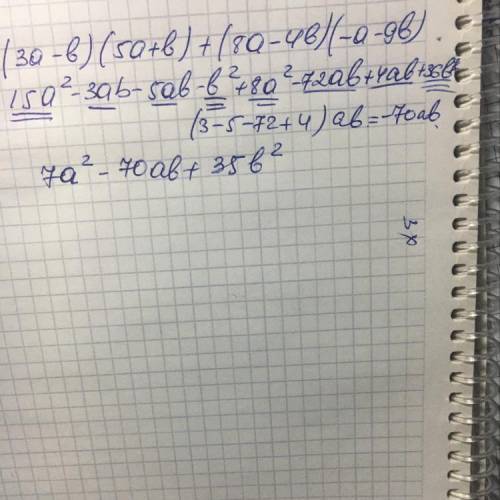 (3a-в)(5a+в)+(8a-4в)(-a-9в)
15a²-3ab-5ab-в²+8a²-72ab+4ab+36в²
(3-5-72+4)ab=-70ab
7a²-70ab+35в²